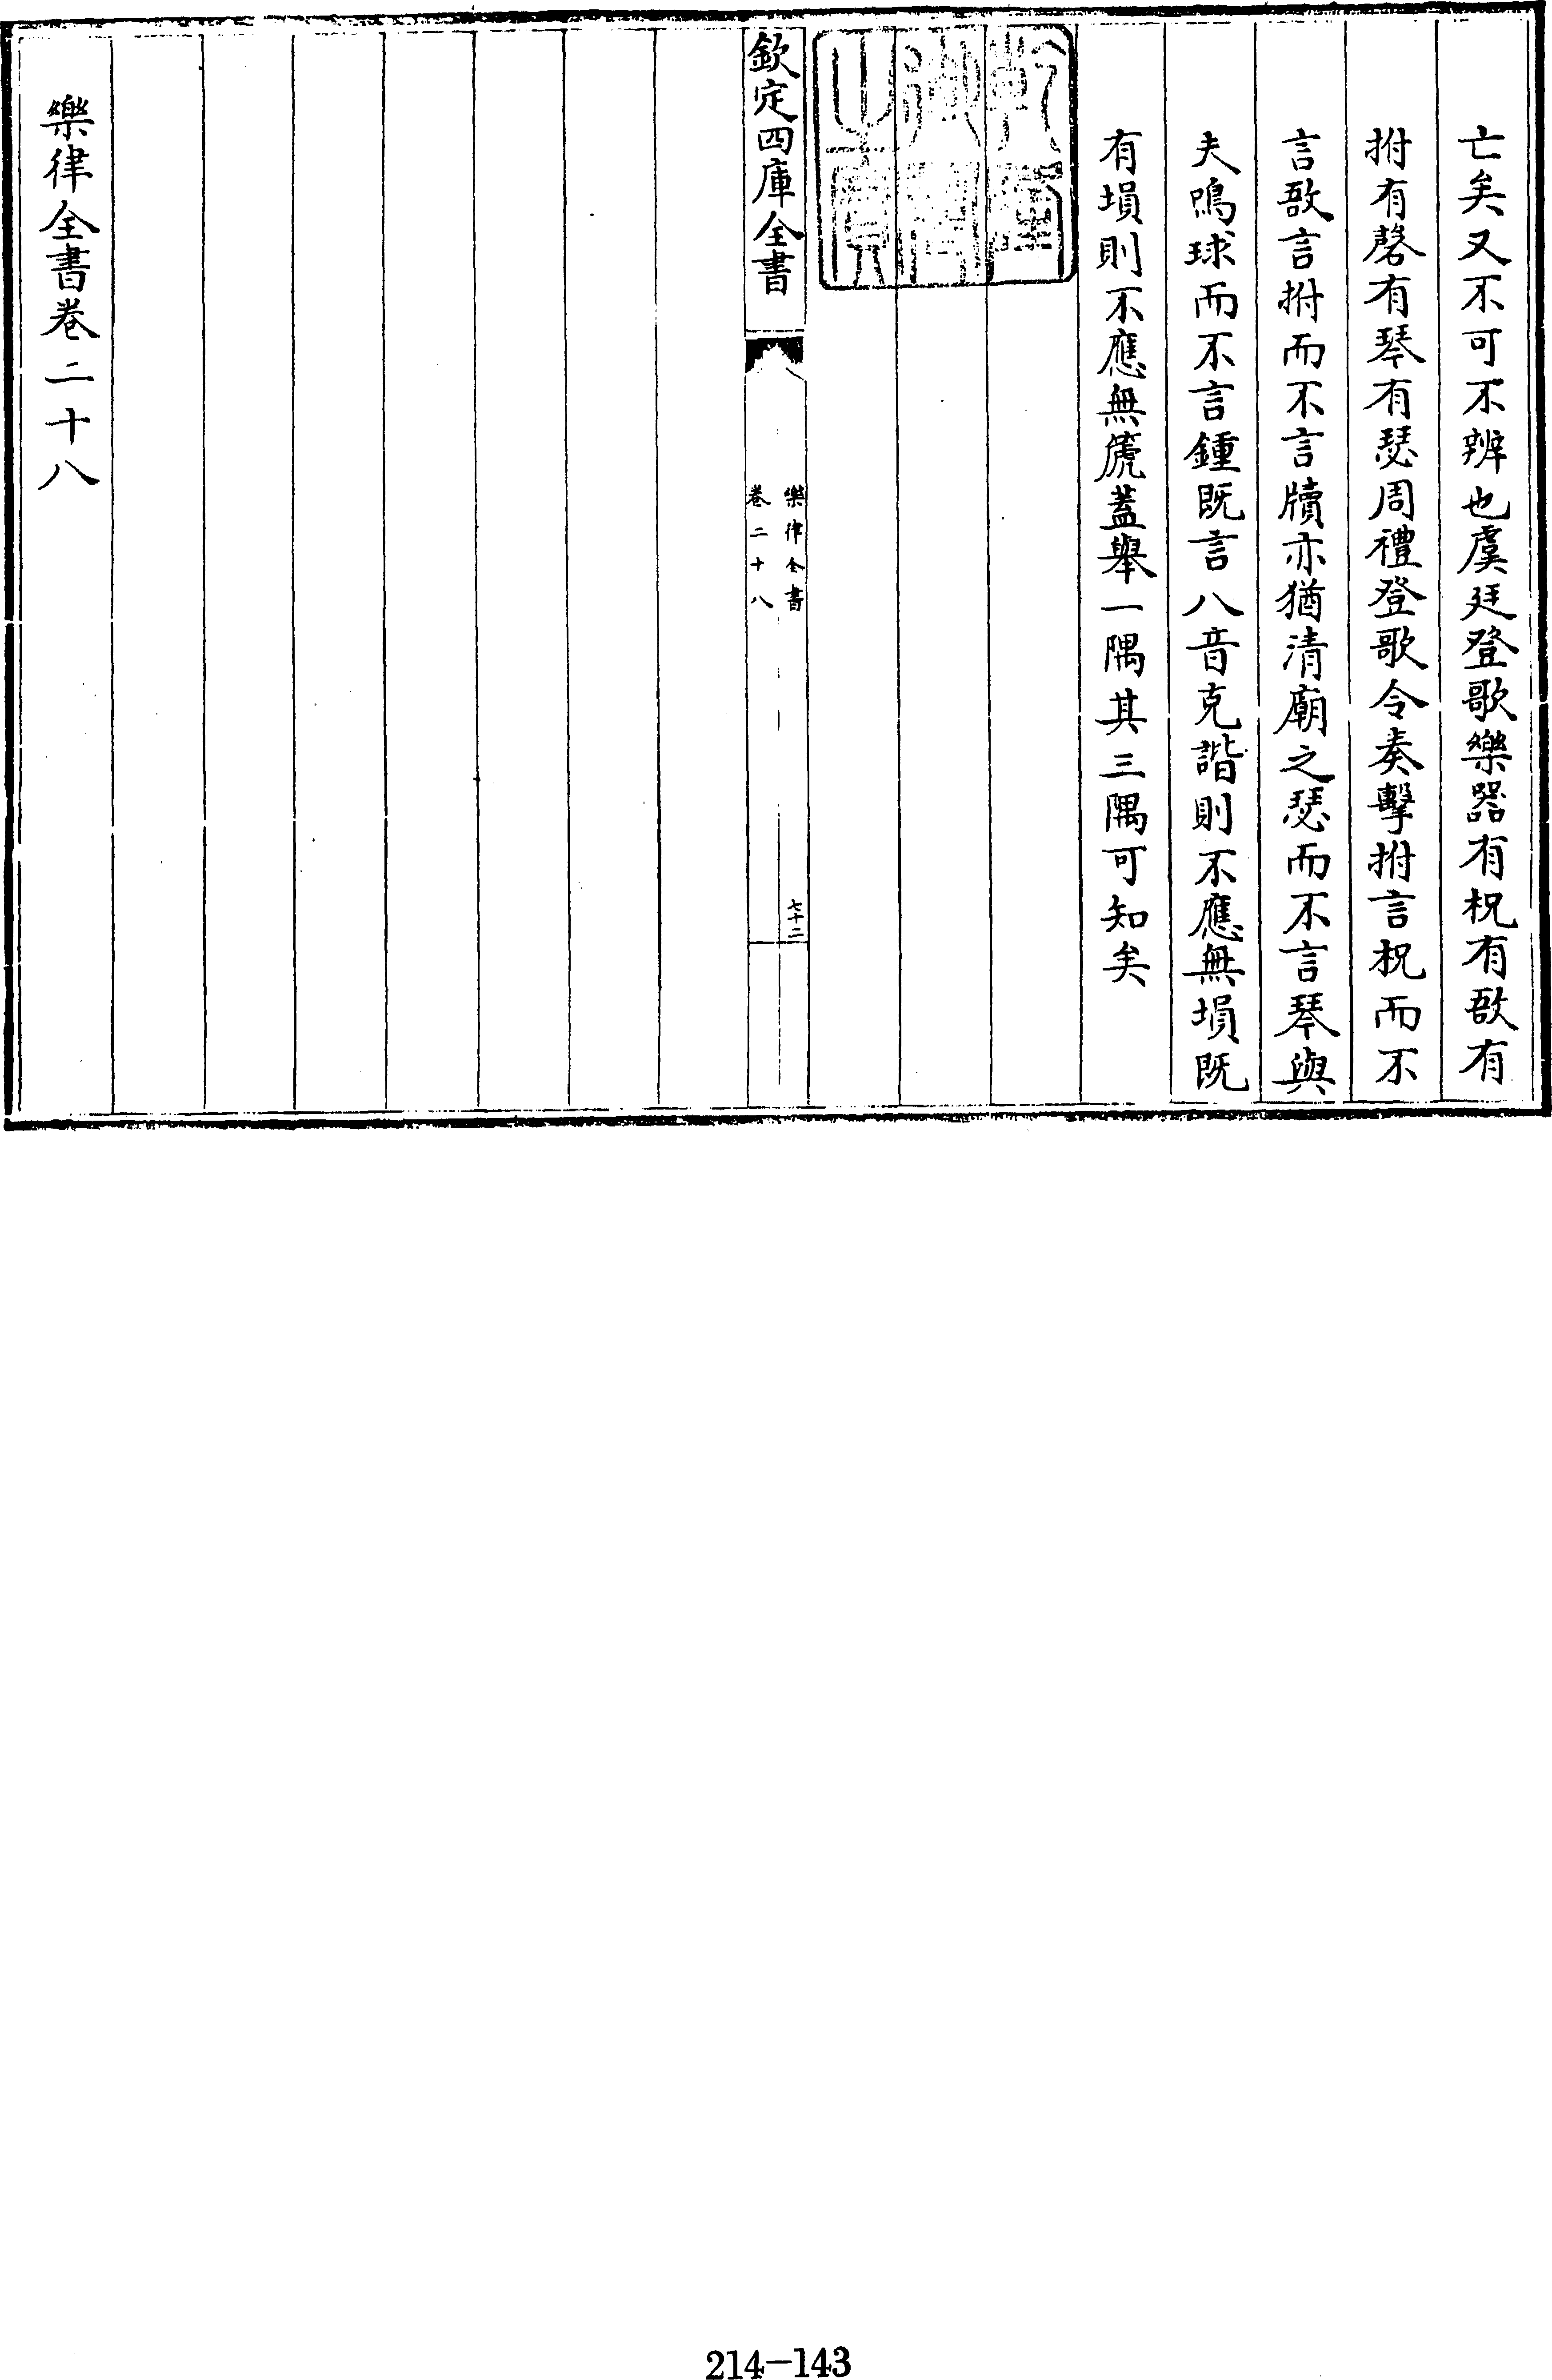 亡矣又不可不辨也虞廷登歌樂器有柷有敔有
拊有磬有琴有瑟周禮登歌令奏擊拊言柷而不
言敔言拊而不言牘亦猶清廟之瑟而不言琴與
夫鳴球而不言鍾既言八音克諧則不應無塤既
有塤則不應無篪蓋舉一隅其三隅可知矣
乾隆御覽之寶
欽定四庫全書
樂律全書
卷二十八
七十二
樂律全書卷二十八
214-143